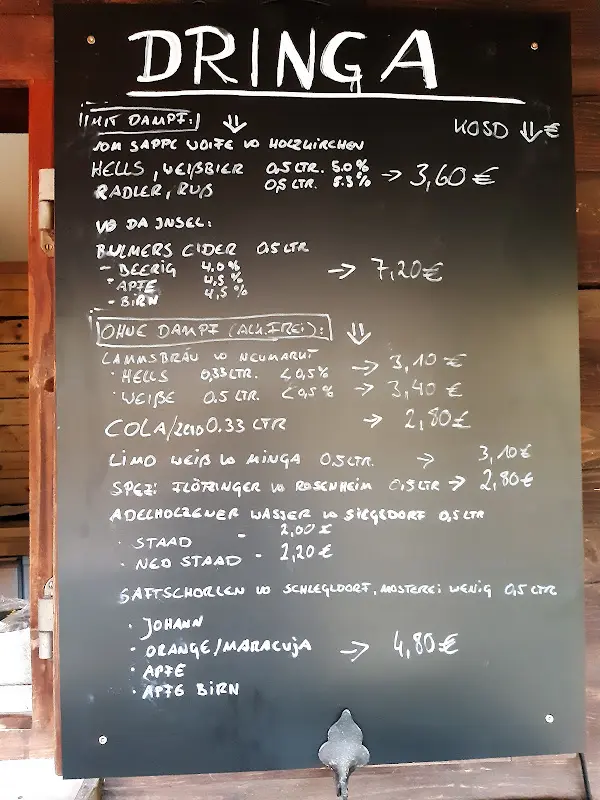 DRINGA
MIT DAMPF:
KOSD €
VOM SAPPL WOIFE VO HOLZKIRCHEN
HELLS, WEIßBIER 0,5 LTR. 5.0 % → 3,60 €
RADLER, RUß 0,5 LTR. 5.3 %
VO DA INSEL:
BULMERS CIDER 0,5 LTR
- BEERIG 4.0 % → 7,20 €
- APFE 4,5 %
- BIRN 4,5 %
OHNE DAMPF (ALK.FREI):
LAMMSBRÄU VO NEUMARKT
· HELLS 0,33 LTR. <0,5% → 3,10 €
· WEIßE 0.5 LTR. <0,5 % → 3,40 €
COLA/ZERO 0.33 LTR → 2,80 €
LIMO WEIß VO MINGA 0,5 LTR. → 3,10 €
SPEZI FLÖTZINGER VO ROSENHEIM 0,5 LTR → 2,80 €
ADELHOLZENER WASSER VO SIEGSDORF 0,5 LTR
· STAAD - 2,00 €
· NED STAAD - 2,20 €
SAFTSCHORLEN VO SCHLEGLDORF, MOSTEREI WENIG 0,5 LTR
· JOHANN
· ORANGE/MARACUJA → 4,80 €
· APFE
· APFE BIRN